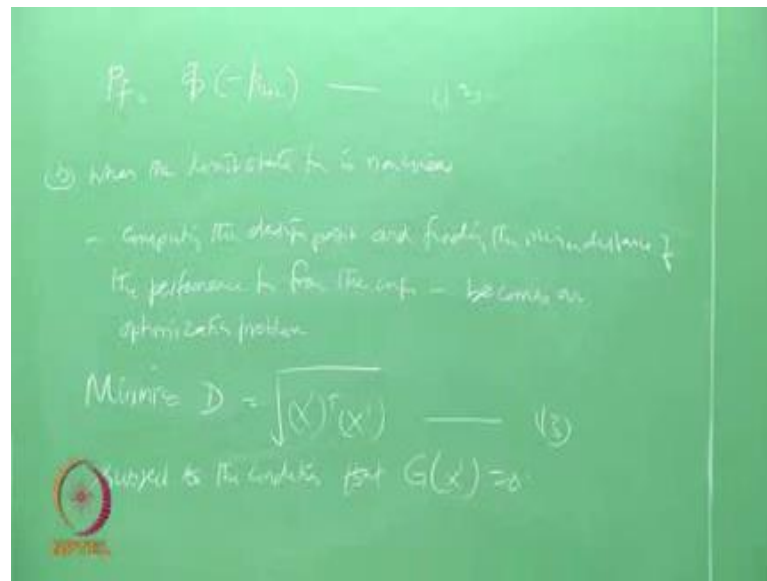 Pf = φ(-βHL) — (12)
(b) When the limit state fn is nonlinear
- Computing the design point and finding the min distance of
the performance fn from the origin - becomes an
optimization problem
Minimize D = √(X')ᵀ(X') — (13)
subject to the condition that G(X') = 0.
NPTEL